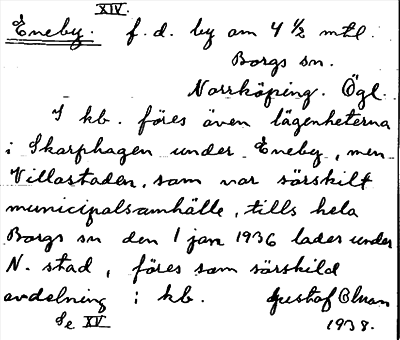 XIV.
Eneby. f. d. by om 4 ½ mtl.
Borgs sn.
Norrköping. Ögl.
I kb. föres även lägenheterna
i Skarphagen under Eneby, men
Villastaden, som var särskilt
municipalsamhälle, tills hela
Borgs sn den 1 jan 1936 lades under
N. stad, föres som särskild
avdelning i kb. Gustaf
Se XV 1938.